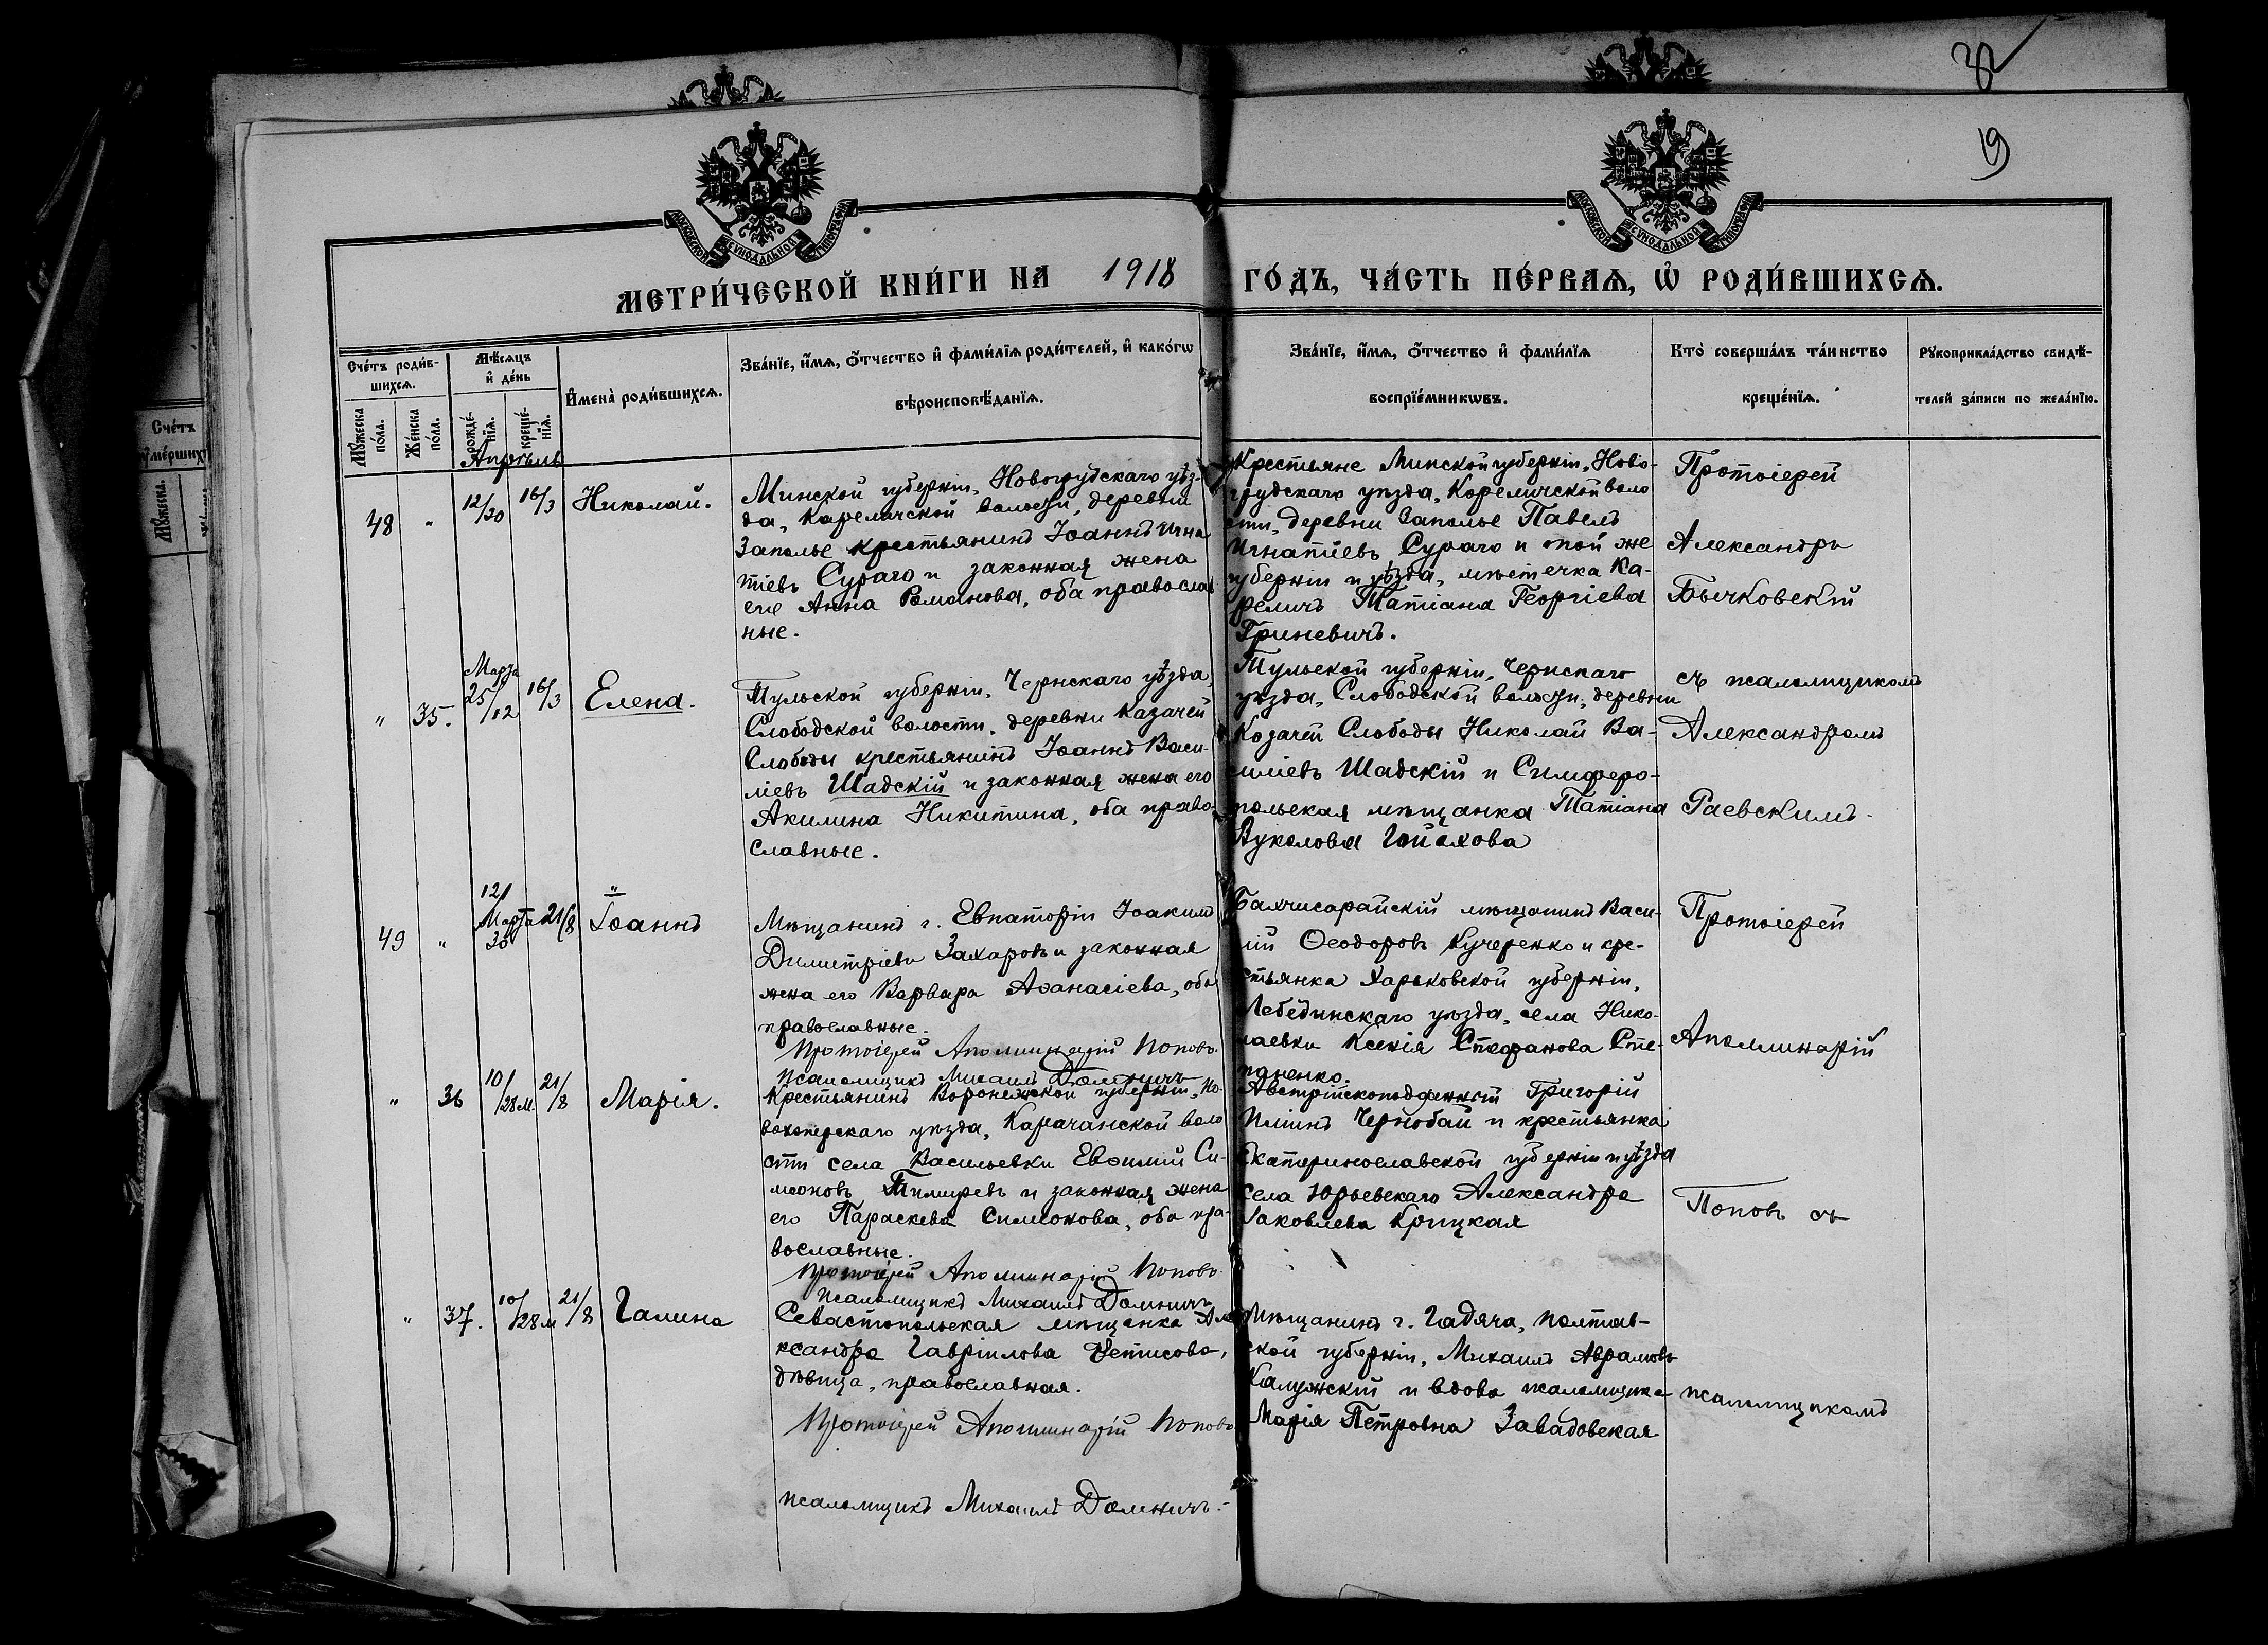 32
19
МОСКОВСКОЙ СѴНОДАЛЬНОЙ ТИПОГРАФІИ
МОСКОВСКОЙ СѴНОДАЛЬНОЙ ТИПОГРАФІИ
МЕТРИ́ЧЕСКОЙ КНИ́ГИ НА 1918 ГО́ДЪ, ЧА́СТЬ ПЕ́РВАѦ, Ѡ҆ РОДИ́ВШИХСѦ.
Счетъ
ѹмершихъ
Мѹжеска.
Сче́тъ роди́в-
шихсѧ.
Мѹ́жеска по́ла.
Же́нска по́ла.
Мѣ́сѧцъ
и҆ де́нь
рожде́-
нїѧ.
креще́-
нїѧ.
И҆мена̀ роди́вшихсѧ.
Зва́нїе, и҆́мѧ, ѻ҆́тчество и҆ фами́лїѧ роди́телей, и҆ како́гѡ
вѣроисповѣ́данїѧ.
Зва́нїе, и҆́мѧ, ѻ҆́тчество и҆ фами́лїѧ
воспрїе́мникѡвъ.
Кто̀ соверша́лъ та́инство
креще́нїѧ.
Рѹкоприкла́дство свидѣ́-
телей за́писи по жела́нїю.
Апрѣль
48
"
12/30
16/3
Николай.
Минской губерніи, Новогрудскаго уѣз-
да, Кареличской волости, деревни
Заполье крестьянинъ Іоаннъ Игна
тіевъ Сураго и законная жена
его Анна Романова, оба православ
ные.
Крестьяне Минской губерніи, Ново-
грудскаго уѣзда, Кореличской воло
сти, деревни Заполье Павелъ
Игнатіевъ Сураго и той же
губерніи и уѣзда, мѣстечка Ка-
реличъ Татіана Георгіева
Гриневичъ.
Протоіерей
Александръ
Бычковскій
"
35.
Марта
25/12
16/3
Елена.
Тульской губерніи, Чернскаго уѣзда,
Слободской волости, деревни Казачей
Слободы крестьянинъ Іоаннъ Васи-
ліевъ Шадскій и законная жена его
Акилина Никитина, оба право-
славные.
Тульской губерніи, Чернскаго
уѣзда, Слободской волости, деревни
Козачей Слободы Николай Ва-
силіевъ Шадскій и Симферо-
польская мѣщанка Татіана
Вуколова
съ псаломщикомъ
Александромъ
Раевскимъ.
49
"
12/
Марта
30
21/8
"
Іоаннъ
Мѣщанинъ г. Евпаторіи Іоакимъ
Димитріевъ Захаровъ и законная
жена его Варвара Аѳанасіева, оба
православные.
Протоіерей Аполлинарій Поповъ.
Псаломщикъ Михаилъ Домничъ
Бахчисарайскій мѣщанинъ Васи-
лій Ѳеодоровъ Кучеренко и кре-
стьянка Харьковской губерніи,
Лебединскаго уѣзда, села Нико-
лаевки Ксенія Стефанова Сте-
паненко.
Протоіерей
Аполлинарій
"
36
10/28 м.
21/8
Марія.
Крестьянинъ Воронежской губерніи, Но-
вохоперскаго уѣзда, Карачанской воло
сти села Васильевки Евѳимій Си-
меоновъ Тимиревъ и законная жена
его Параскева Симеонова, оба пра-
вославные.
Протоіерей Аполлинарій Поповъ.
Псаломщикъ Михаилъ Домничъ
Австрійскоподданный Григорій
Иліинъ Чернобай и крестьянка
Екатеринославской губерніи и уѣзда
села Юрьевскаго Александра
Іаковлева Крицкая
Поповъ съ
"
37.
10/28 м
21/8
Галина
Севастопольская мѣщанка Але
ксандра Гавріилова Фетисова,
дѣвица, православная.
Протоіерей Аполлинарій Поповъ
псаломщикъ Михаилъ Домничъ.
Мѣщанинъ г. Гадяча, Полтав-
ской губерніи, Михаилъ Аврамовъ
Калужскій и вдова псаломщика
Марія Петровна Завадовская
псаломщикомъ